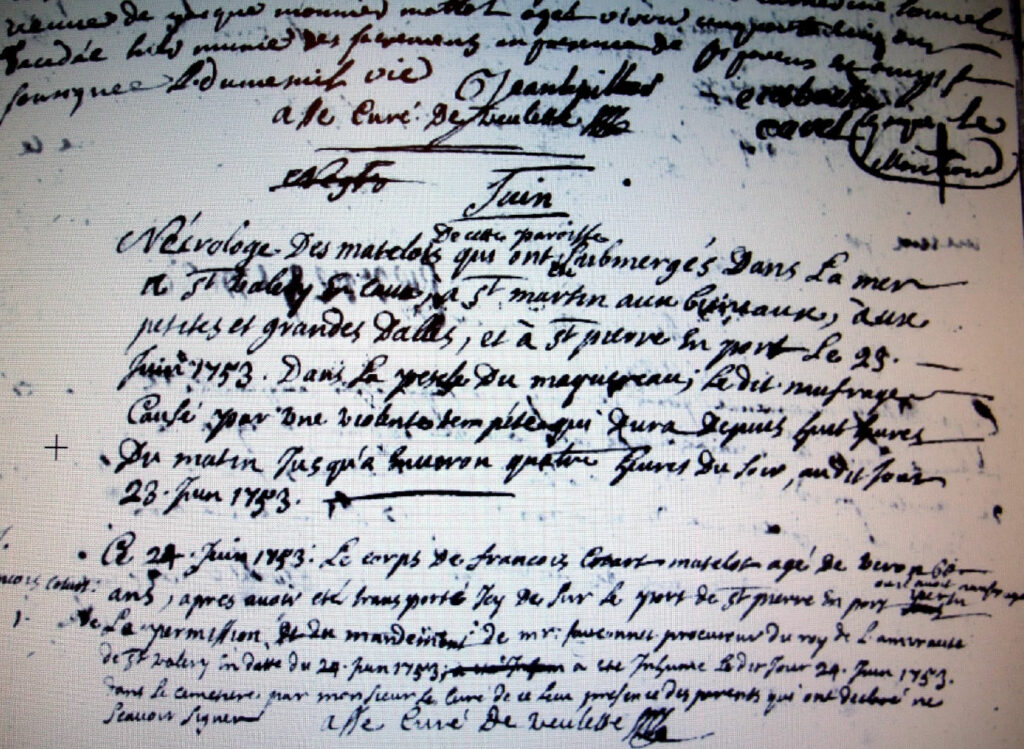 veuve de mounier matelot agée
decedée hier munie des sacrements en presence de
vie
asse Curé De veulette
Juin
De cette paroisse
Nécrologe Des matelots qui ont été submergés Dans La mer
a St valery En caux, a St martin aux buneaux, aux
petites et grandes Dalles, et à St pierre En port Le 23.
Juin 1753. Dans La pesche Du maquereau; Le dit naufrage
Causé par une violente tempéte qui dura Depuis huit heures
Du matin Jusqu'a Environ quatre heures Du soir, au dit Jour
23. Juin 1753.
Ce 24. Juin 1753. Le corps De francois Cotart matelot agé de viron 60
ancois Cotart:
ans, apres avoir été transporté Icy De sur Le port de St pierre En port
1.
De La permission et du mandement de mr procureur du roy de L'amirauté
de St valery en datte du 24. Juin 1753, a eté Inhumé Le dit Jour 24. Juin 1753.
dans Le cimetiere par monsieur Le Curé de ce Lieu presence des parents qui ont declaré ne
Scavoir Signer
asse Curé De veulette